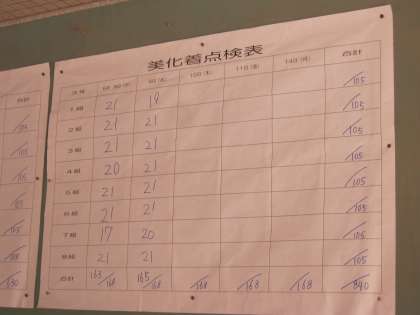 美化着点検表
合計
1組 21 19 /105
2組 21 21 /105
3組 21 21 /105
4組 20 21 /105
5組 21 21 /105
6組 21 21 /105
7組 17 20 /105
8組 21 21 /105
合計 163/168 165/168 /168 /168 /168 /840
合計
/105
/105
/105
/105
/105
/105